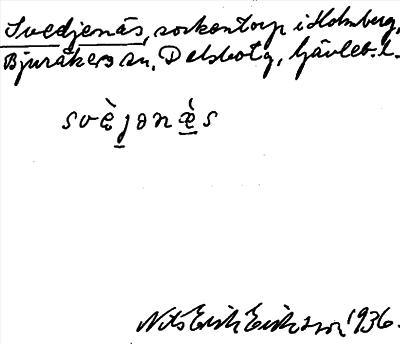 Svedjenäs, sockentorp i Holmberg,
Bjuråkers sn, Delsbo tg, Gävleb. l.
svèjənæ̀s
Nils Erik Eriksson 1936.